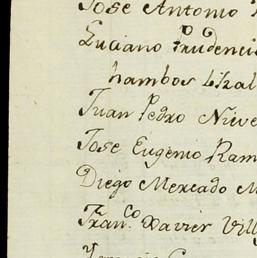 Jose Antonio
Luciano Prudencio
hambos Lizal
Juan Pedro Nieve
Jose Eugenio Ram
Diego Mercado M
Fran.co Xavier Vill